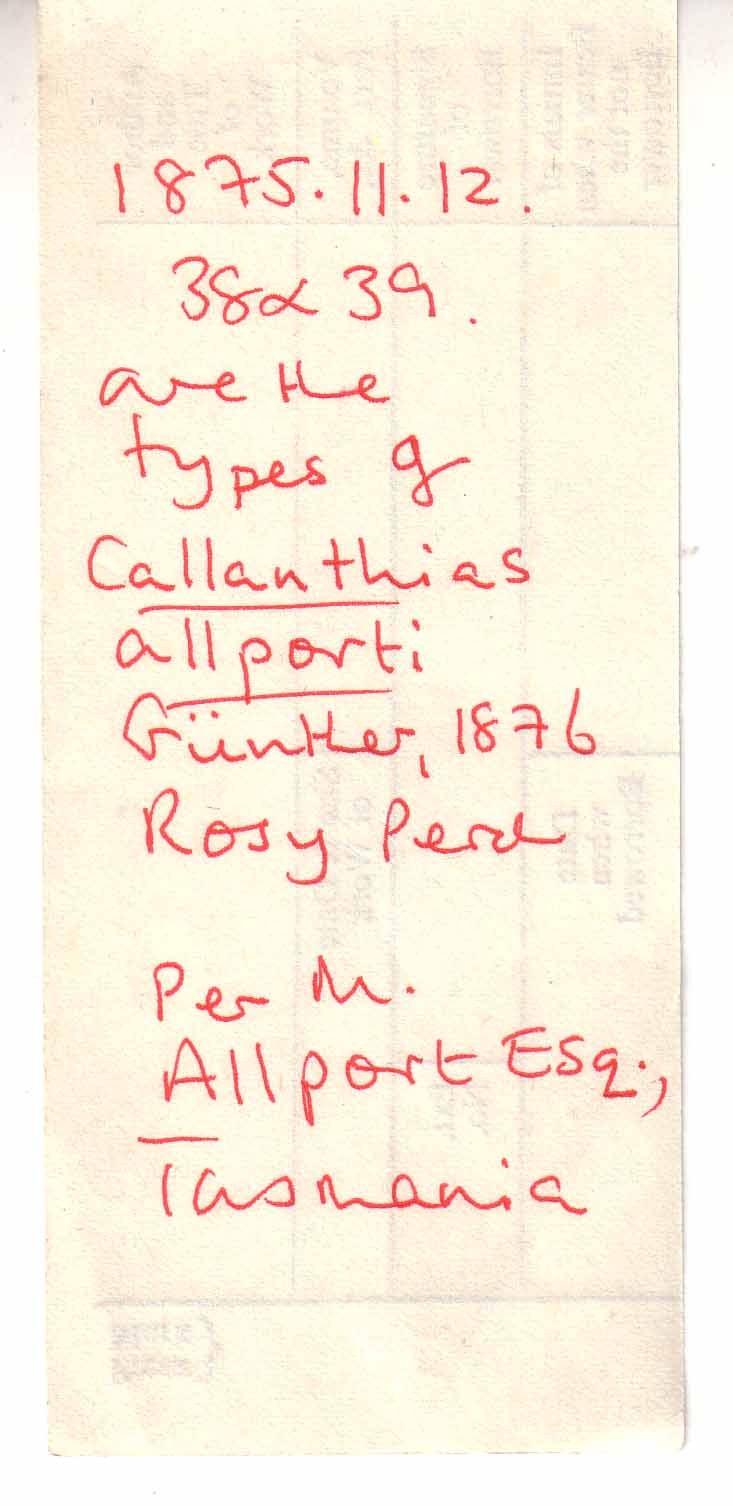 1875.11.12.
38 & 39.
are the
types of
Callanthias
allporti
Günther, 1876
Rosy Perch
Per M.
Allport Esq.,
Tasmania